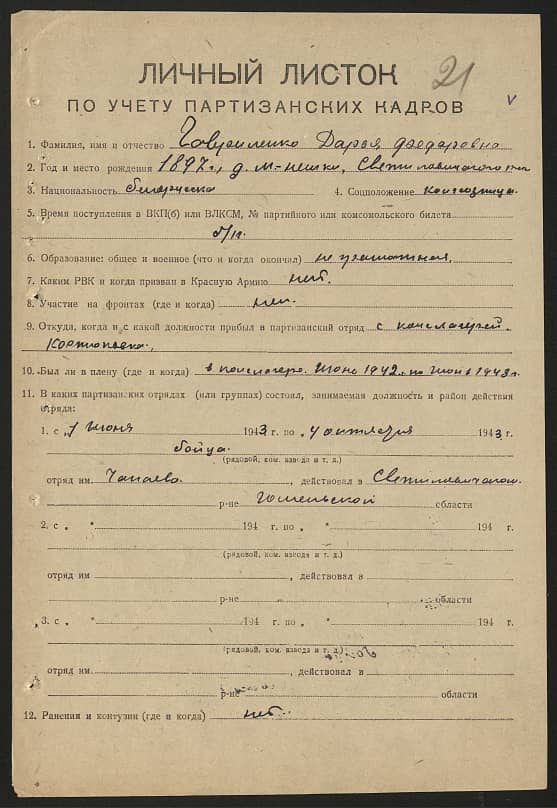 ЛИЧНЫЙ ЛИСТОК
21
ПО УЧЕТУ ПАРТИЗАНСКИХ КАДРОВ
v
1. Фамилия, имя и отчество Дарья
2. Год и место рождения 1897 г., д.
3. Национальность 4. Соцположение колхозница
5. Время поступления в ВКП(б) или ВЛКСМ, № партийного или комсомольского билета
б/п.
6. Образование: общее и военное (что и когда окончил) не грамотная,
7. Каким РВК и когда призван в Красную Армию нет.
8. Участие на фронтах (где и когда) нет.
9. Откуда, когда и с какой должности прибыл в партизанский отряд с
10. Был ли в плену (где и когда) в 1942 г. по 1943 г.
11. В каких партизанских отрядах (или группах) состоял, занимаемая должность и район действия
отряда:
1. с 1 июня 1943 г. по 4 октября 1943 г.
бойца.
(рядовой, ком. взвода и т. д.)
отряд им Чапаева , действовал в
р-не Гомельской области
2. с „ " 194 г. по „ " 194 г.
(рядовой, ком. взвода и т. д.)
отряд им , действовал в
р-не области
3. с „ " 194 г. по „ " 194 г.
(рядовой, ком. взвода и т. д.)
отряд им. , действовал в
р-не области
12. Ранения и контузии (где и когда) нет.